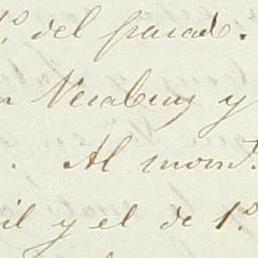 1º. del pasado.
n Veraluz y
. Al mom.to
il y el de 1.º